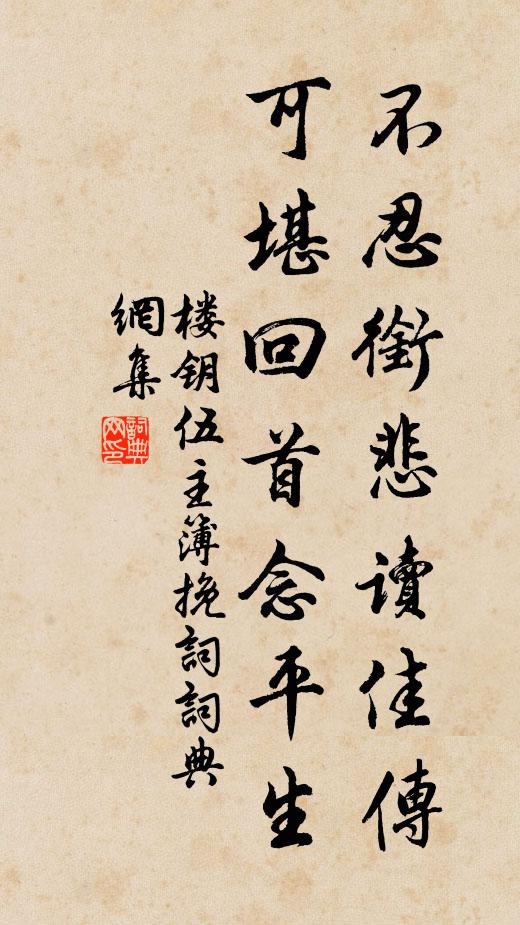 不忍銜悲讀佳傳
可堪回首念平生
楼钥伍主簿挽詞詞典
網集
詞典网印